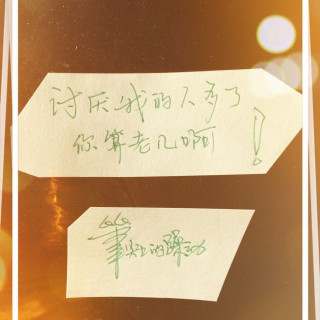 讨厌我的人多了
你算老几啊!
筆尖上的躁动